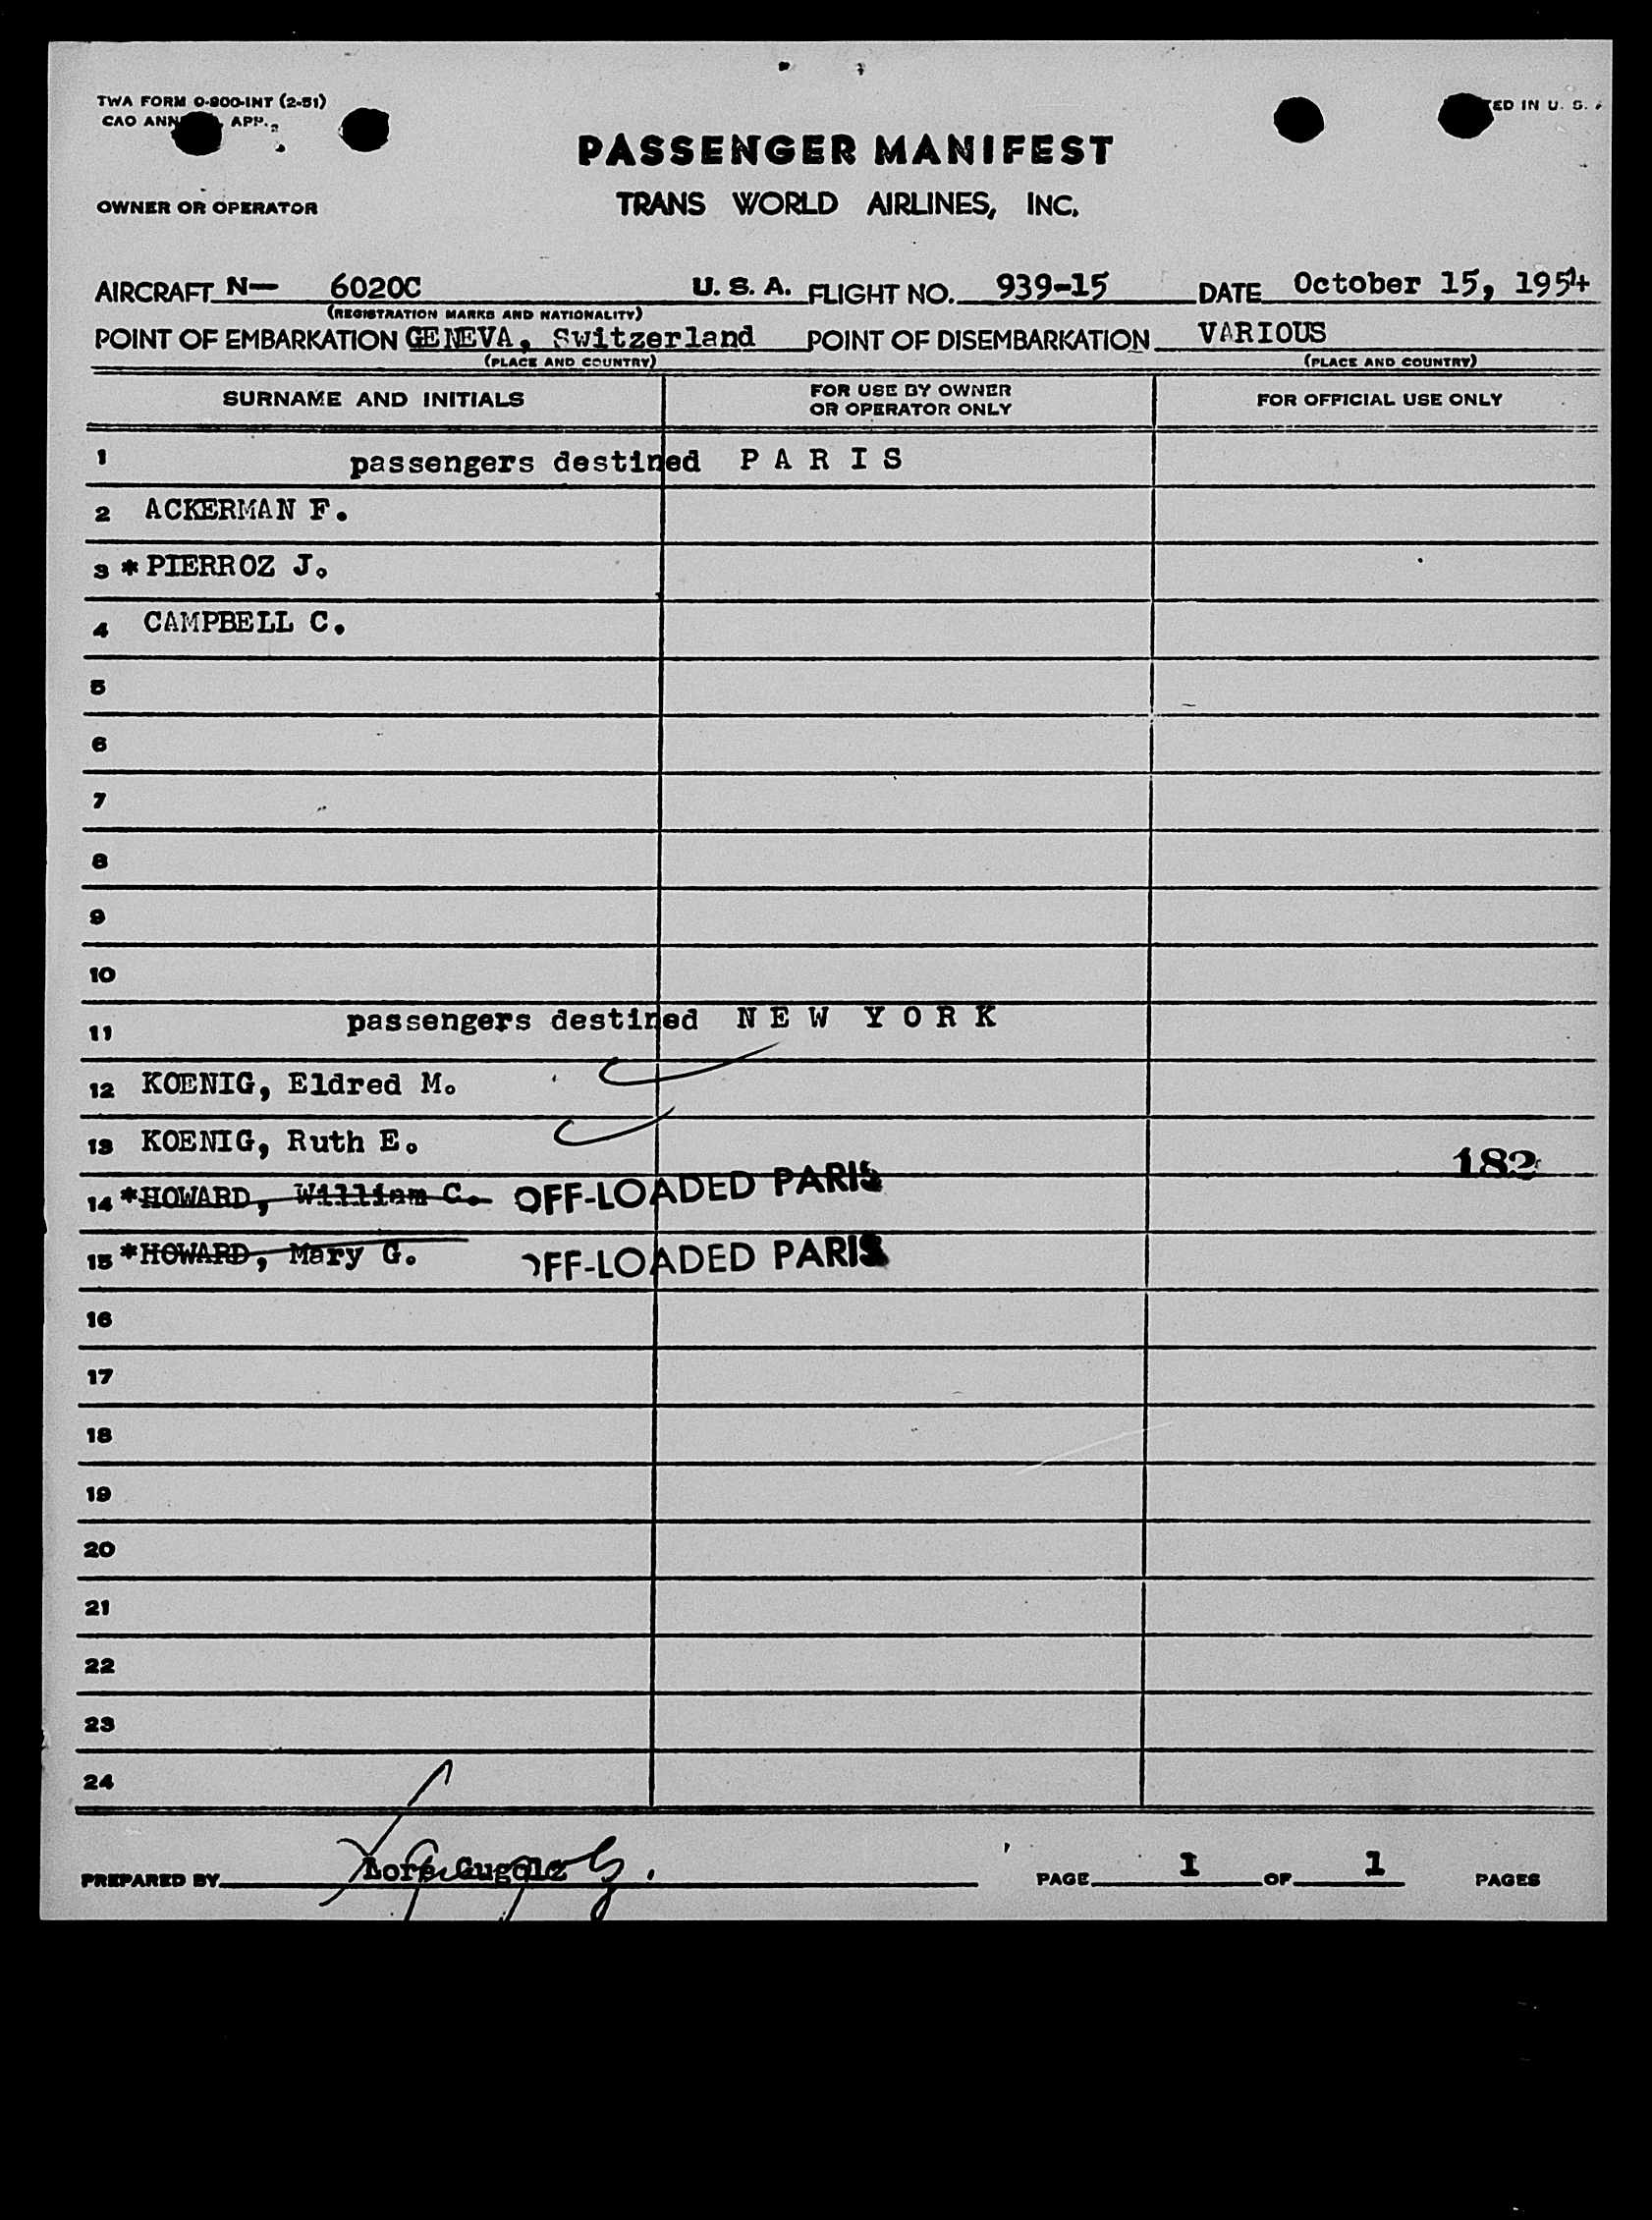 TWA FORM O-800-INT (2-51)
CAO ANN APP.
ED IN U. S.
PASSENGER MANIFEST
OWNER OR OPERATOR TRANS WORLD AIRLINES, INC.
AIRCRAFT N— 6020C U. S. A. FLIGHT NO. 939-15 DATE October 15, 1954
(REGISTRATION MARKS AND NATIONALITY)
POINT OF EMBARKATION GENEVA, Switzerland POINT OF DISEMBARKATION VARIOUS
(PLACE AND COUNTRY) (PLACE AND COUNTRY)
SURNAME AND INITIALS FOR USE BY OWNER OR OPERATOR ONLY FOR OFFICIAL USE ONLY
1 passengers destined P A R I S
2 ACKERMAN F.
3 * PIERROZ J.
4 CAMPBELL C.
5
6
7
8
9
10
11 passengers destined N E W Y O R K
12 KOENIG, Eldred M.
13 KOENIG, Ruth E.
182
14 *HOWARD, William C. OFF-LOADED PARIS
15 *HOWARD, Mary G. OFF-LOADED PARIS
16
17
18
19
20
21
22
23
24
PREPARED BY PAGE 1 OF 1 PAGES